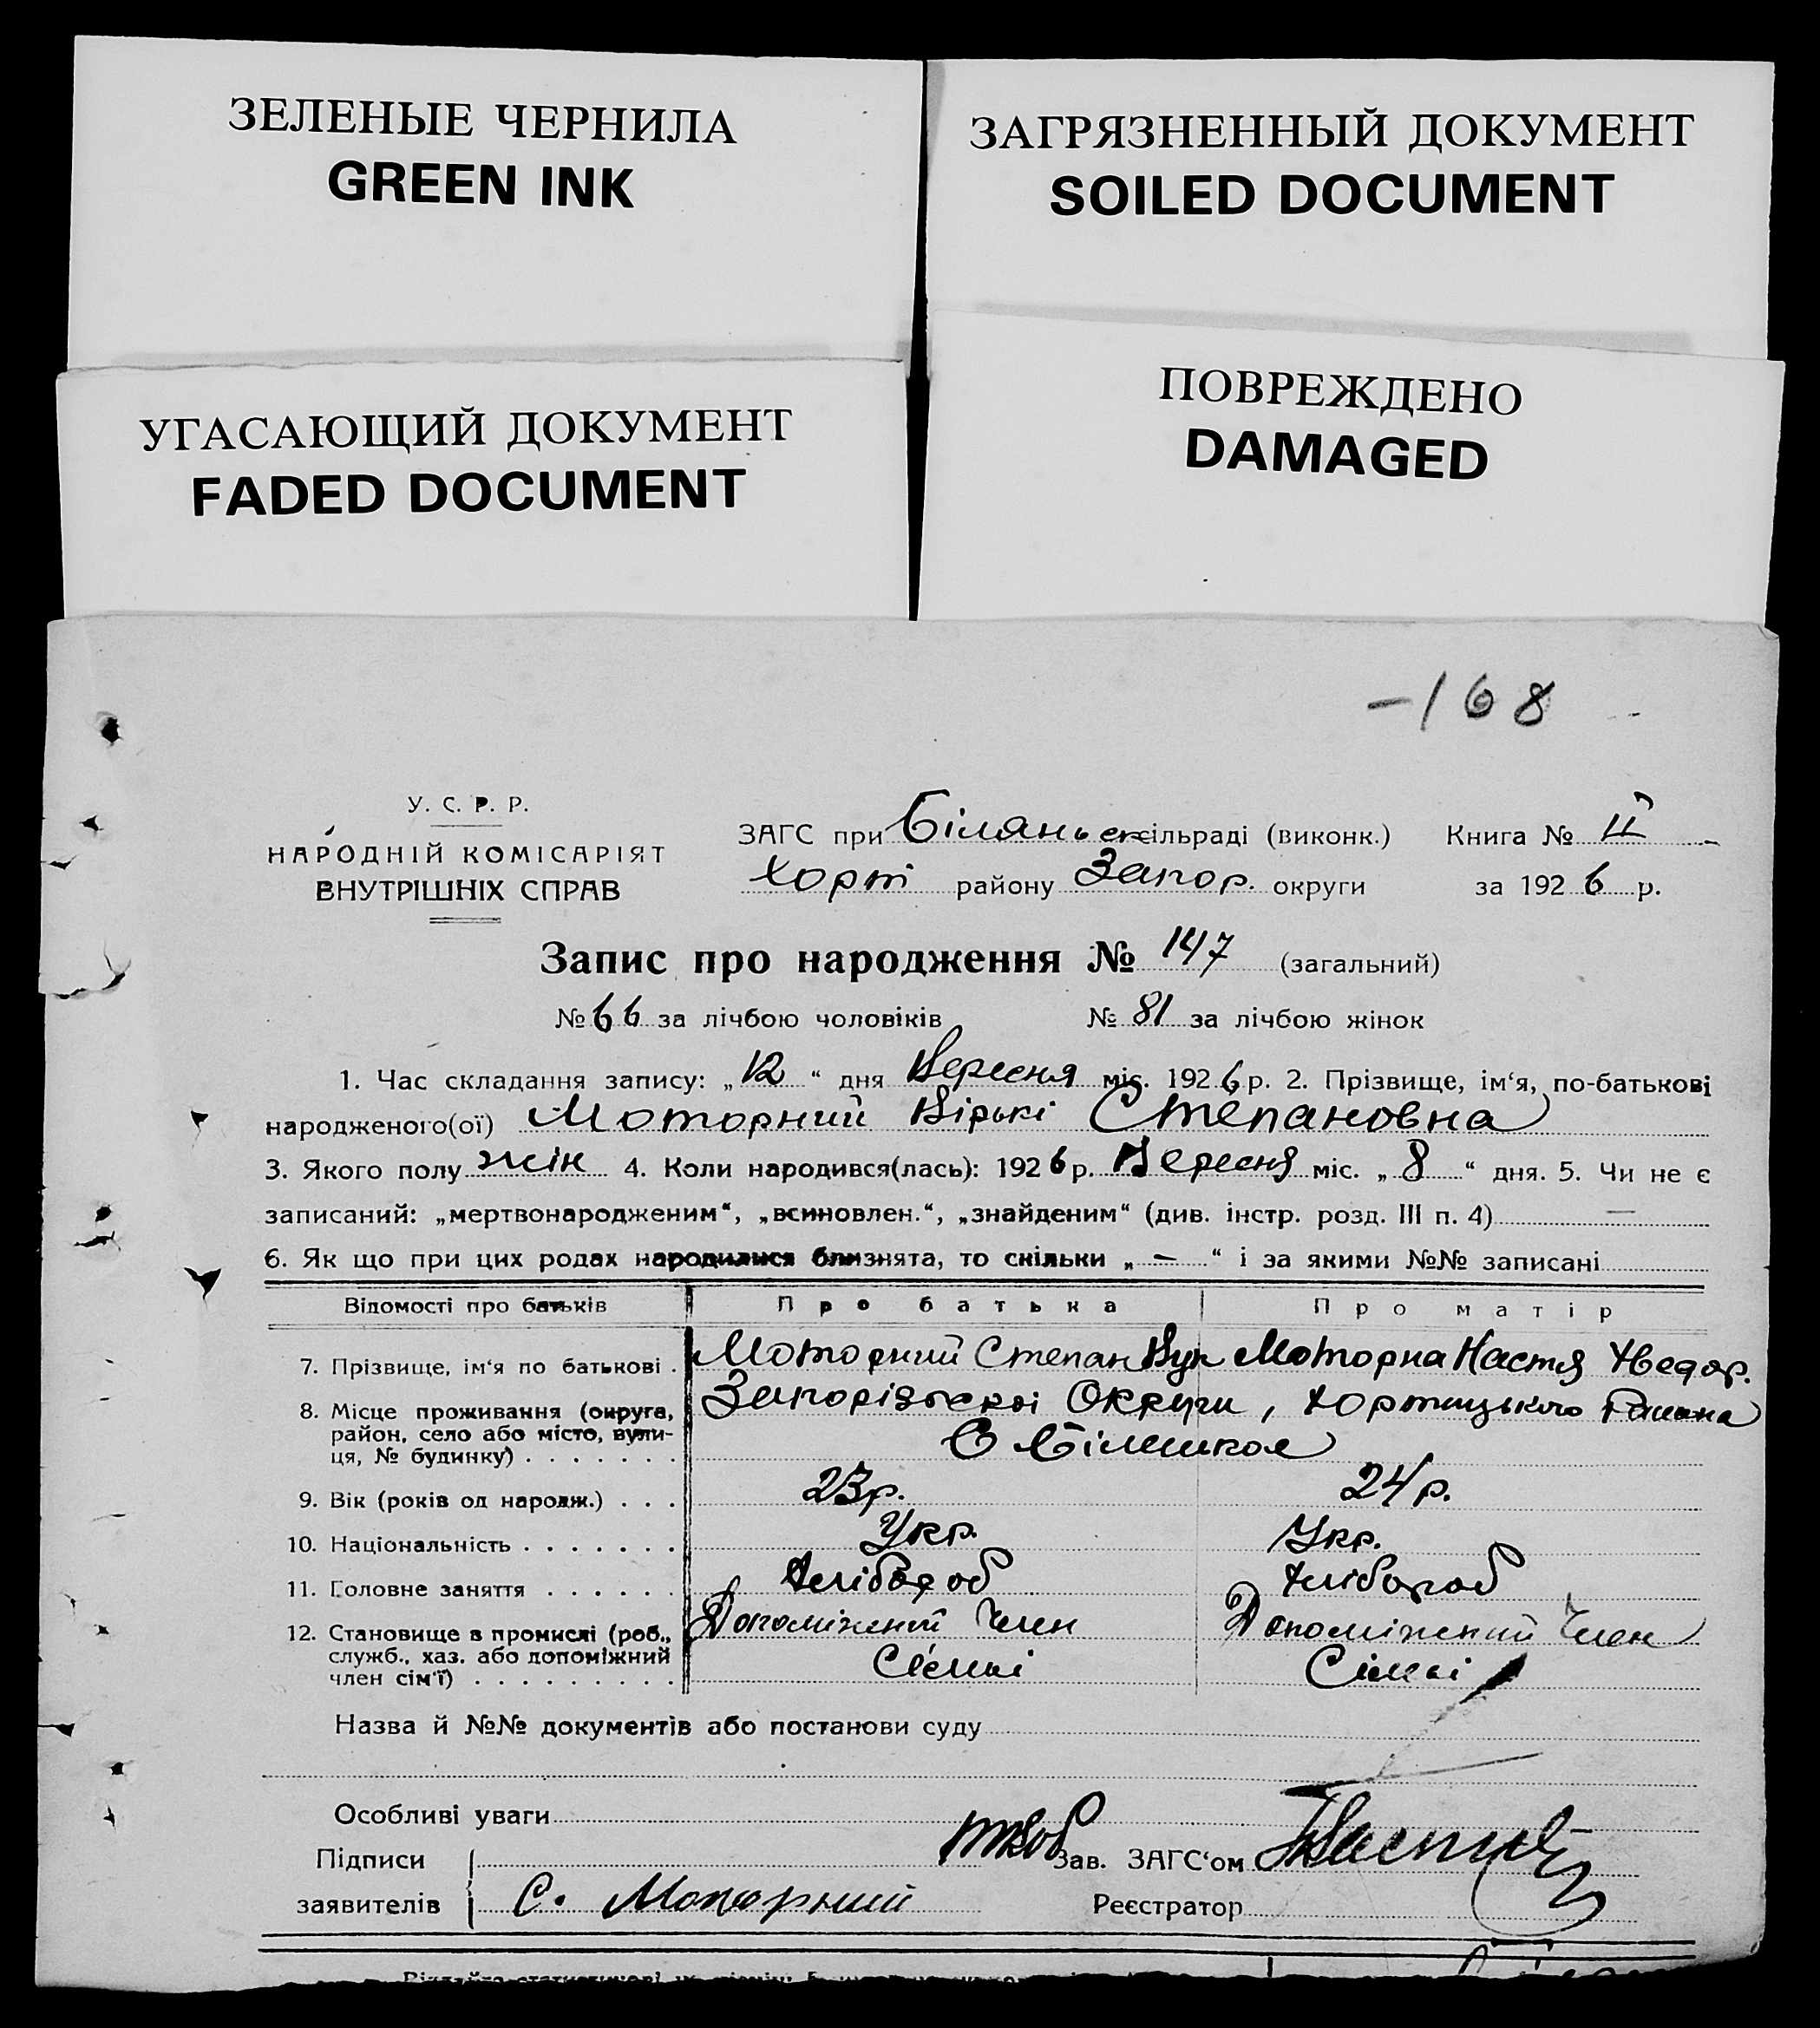 ЗЕЛЕНЫЕ ЧЕРНИЛА
GREEN INK
ЗАГРЯЗНЕННЫЙ ДОКУМЕНТ
SOILED DOCUMENT
УГАСАЮЩИЙ ДОКУМЕНТ
FADED DOCUMENT
ПОВРЕЖДЕНО
DAMAGED
-168
У. С. Р. Р.
НАРОДНІЙ КОМІСАРІЯТ
ВНУТРІШНІХ СПРАВ
ЗАГС при Біляньск сільраді (виконк.) Книга № II
Хорт району Запор. округи за 1926 р.
Запис про народження № 147 (загальний)
№ 66 за лічбою чоловіків № 81 за лічбою жінок
1. Час складання запису: „12“ дня Вересня міс. 1926 р. 2. Прізвище, ім‘я, по-батькові
народженого(ої) Моторний Вірькі Степановна
3. Якого полу жін 4. Коли народився(лась): 1926 р. Вересня міс. „8“ дня. 5. Чи не є
записаний: „мертвонародженим“, „всиновлен.“, „знайденим“ (див. інстр. розд. III п. 4) —
6. Як що при цих родах народилися близнята, то скільки „—“ і за якими №№ записані
Відомості про батьків Про батька Про матір
7. Прізвище, ім‘я по батькові . Моторний Степан Моторна Настя Хведор.
8. Місце проживання (округа, район, село або місто, вулиця, № будинку) . . . . . . . Запорізької Округи, Хортицького Району
С
9. Вік (років од народж.) . . . 23р. 24р.
10. Національність . . . . . . . Укр. Укр.
11. Головне заняття . . . . . . Хлібороб Хлібороб
12. Становище в промислі (роб., Допоміжний Член Допоміжний Член
служб., хаз. або допоміжний член сім‘ї) . . . . . . . . . Сємьі Сімьі
Назва й №№ документів або постанови суду
Особливі уваги
Підписи Зав. ЗАГС‘ом
заявителів С. Моторний Реєстратор